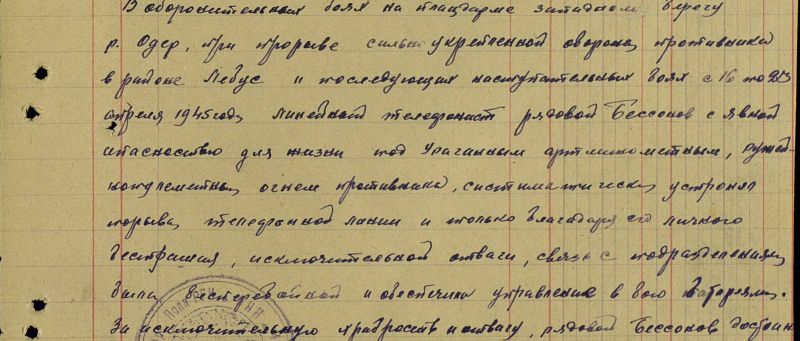 В оборонительных боях на плацдарме западном берегу
р. Одер, при прорыве сильно укрепленной обороны противника
в районе Лебус и последующих наступательных боях с 16 по
апреля 1945 года линейной телефонист рядовой Бессонов с явной
опасностью для жизни под ураганным артминометным, ружей-
нопулеметным огнем противника, систиматически устронял
порывы телефонной линии и только благодаря его личного
бестрашия, исключительной отваги, связь с подразделениями
была бесперебойной и обеспечила управление в бою батареями.
За исключительную храбрость и отвагу, рядовой Бессонов достоин